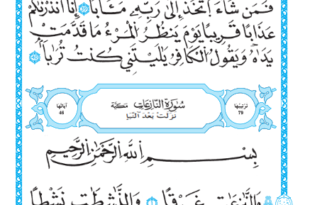 فَمَن شَآءَ ٱتَّخَذَ إِلَىٰ رَبِّهِۦ مَـَٔابًا ٣٩ إِنَّآ أَنذَرْنَٰكُمْ
عَذَابًا قَرِيبًا يَوْمَ يَنظُرُ ٱلْمَرْءُ مَا قَدَّمَتْ
يَدَاهُ وَيَقُولُ ٱلْكَافِرُ يَٰلَيْتَنِى كُنتُ تُرَٰبًۢا ٤٠
ترتيبها 79 سورة النازعات مكية آياتها 46
نزلت بعد النبأ
بِسْمِ ٱللَّهِ ٱلرَّحْمَٰنِ ٱلرَّحِيمِ
وَٱلنَّٰزِعَٰتِ غَرْقًا ١ وَٱلنَّٰشِطَٰتِ نَشْطًا